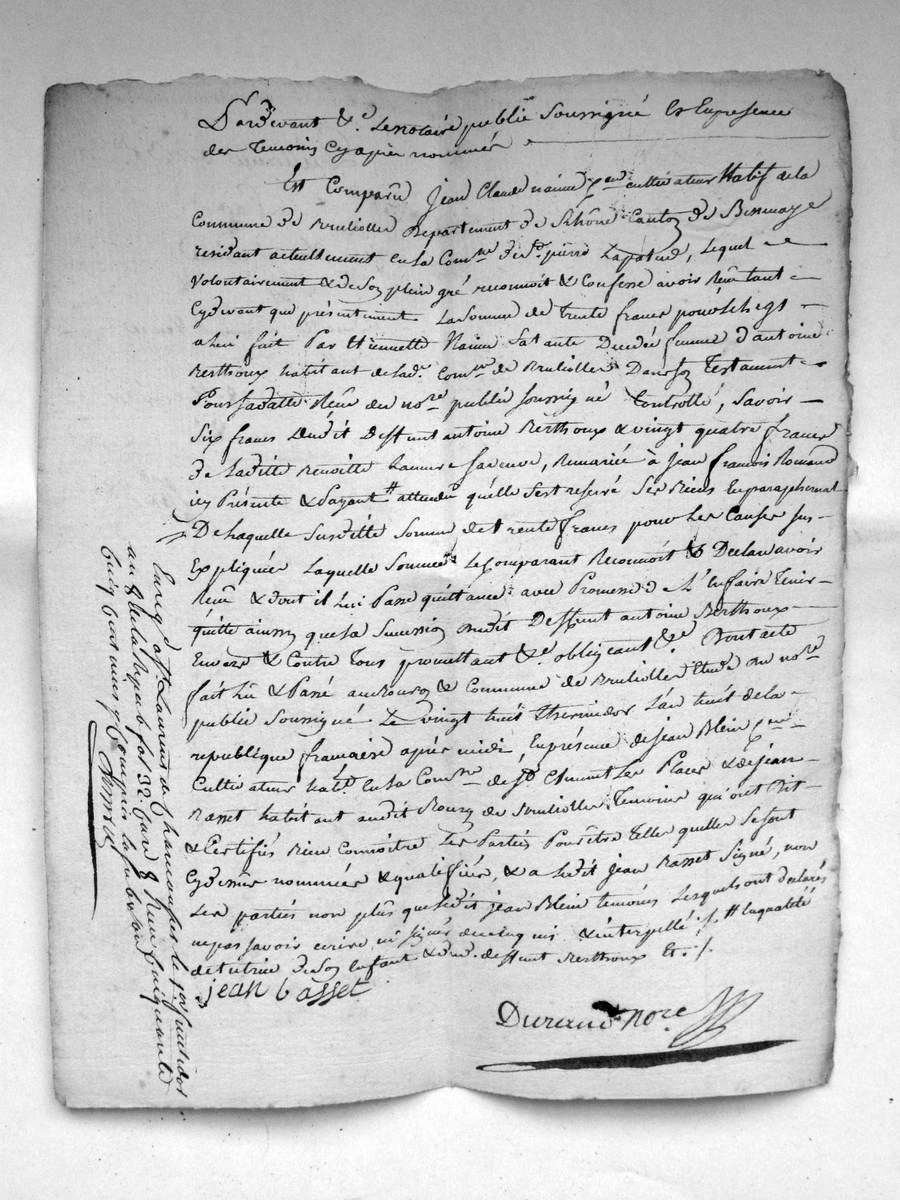 Pardevant &c. Lenotaire publie Soussigné Et Enpresence
des Temoins Cyapres nommés
Est Comparu Jean Claude naime pere cultivateur Natif de la
Commune de Brulliolles Departement de Rhône Canton de Bessenay
residant actuellement en la Comne de St. pierre Lapalud, Lequel
Volontairement & de Son plein gré reconnoit & Confesse avoir Reçu tant
Cydevant que présentement La Somme de trente francs pour le Legs
a lui fait Par Etiennette Naime Sa tante Decedée femme d'antoine
Berthoux habitant de Lade. Comne de Brulliolles Dans Son Testament
Reçu du nore publie soussigné Controllé, Savoir
Six francs Dudit Deffunt antoine Berthoux & vingt quatre francs
de Ladite Benoitte Sa veuve, Remariée à Jean francois Romand
icy Présente & Payant # attendu qu'elle S'est reservé Ses Biens Enparaphernal
De Laquelle Susditte Somme de trente francs pour Les Causes Sus
Expliquées Laquelle Somme Le Comparant Reconnoit & Declare avoir
Reçu & dont il Lui Passe quittance avec Promesse de L'En faire Tenir
quitte ainsy que La Sucession Dudit Deffunt antoine Berthoux
Envers & Contre Tous promettant &c. obligeant &c. Dont acte
fait Lu & Passé au Bourg & Commune de Brulliolles Etude du nore
publie Soussigné Le vingt huit thermidor L'an huit de la
republique francaise après midi En présence de Jean Blein
Cultivateur habt. En la Comne de St. Clement Les Places & de Jean
Basset habitant audit Bourg de Brulliolles Temoins qui ont Dit
& Certifiés Bien Connoitre Les Parties Pour être Telles qu'elles Se Sont
Cydessus nommées & qualifiées, & a Ledit Jean Basset Signé, non
Les parties non plus que Ledit Jean Blein temoins Lesquels ont declarés
ne pas Savoir écrire ni Signer de ce enquis & interpellé ./. # En qualité
de tutrice de Son Enfant & dud. deffunt Berthoux Et ./.
jean basset
Durand nore
Enreg. a St. Laurent de Chamousset le jour fructidor
an 8 de la Repub. fol 32. Case 8 Reçu Cinquante
Cinq Centimes y Compris la subvon